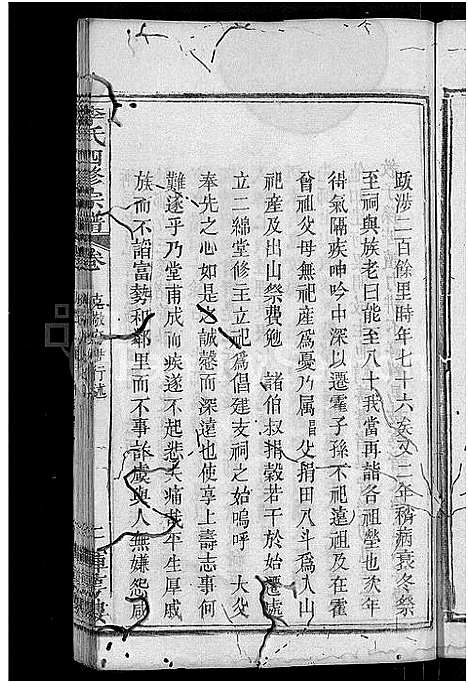 跋涉二百餘里時年七十六矣又二年稍病衰冬祭
至祠與族老曰能至八十我當再詣各祖塋也次年
得氣隔疾呻吟中深以遷霍子孫不祀遠祖及在霍
曾祖父母無祀產爲憂乃屬 父捐田八斗爲入山
祀產及出山祭費勉 諸伯叔捐穀若干於始遷處
立二綿堂修主立祀爲倡建支祠之始嗚呼 大父
奉先之心如是之誠懇而深遠也使享上壽志事何
難遂乎乃堂甫成而疾遂不起悲夫痛哉平生厚戚
族而不諂富勢和鄉里而不事訴虞與人無嫌怨咸
李氏四修宗譜 卷
行述